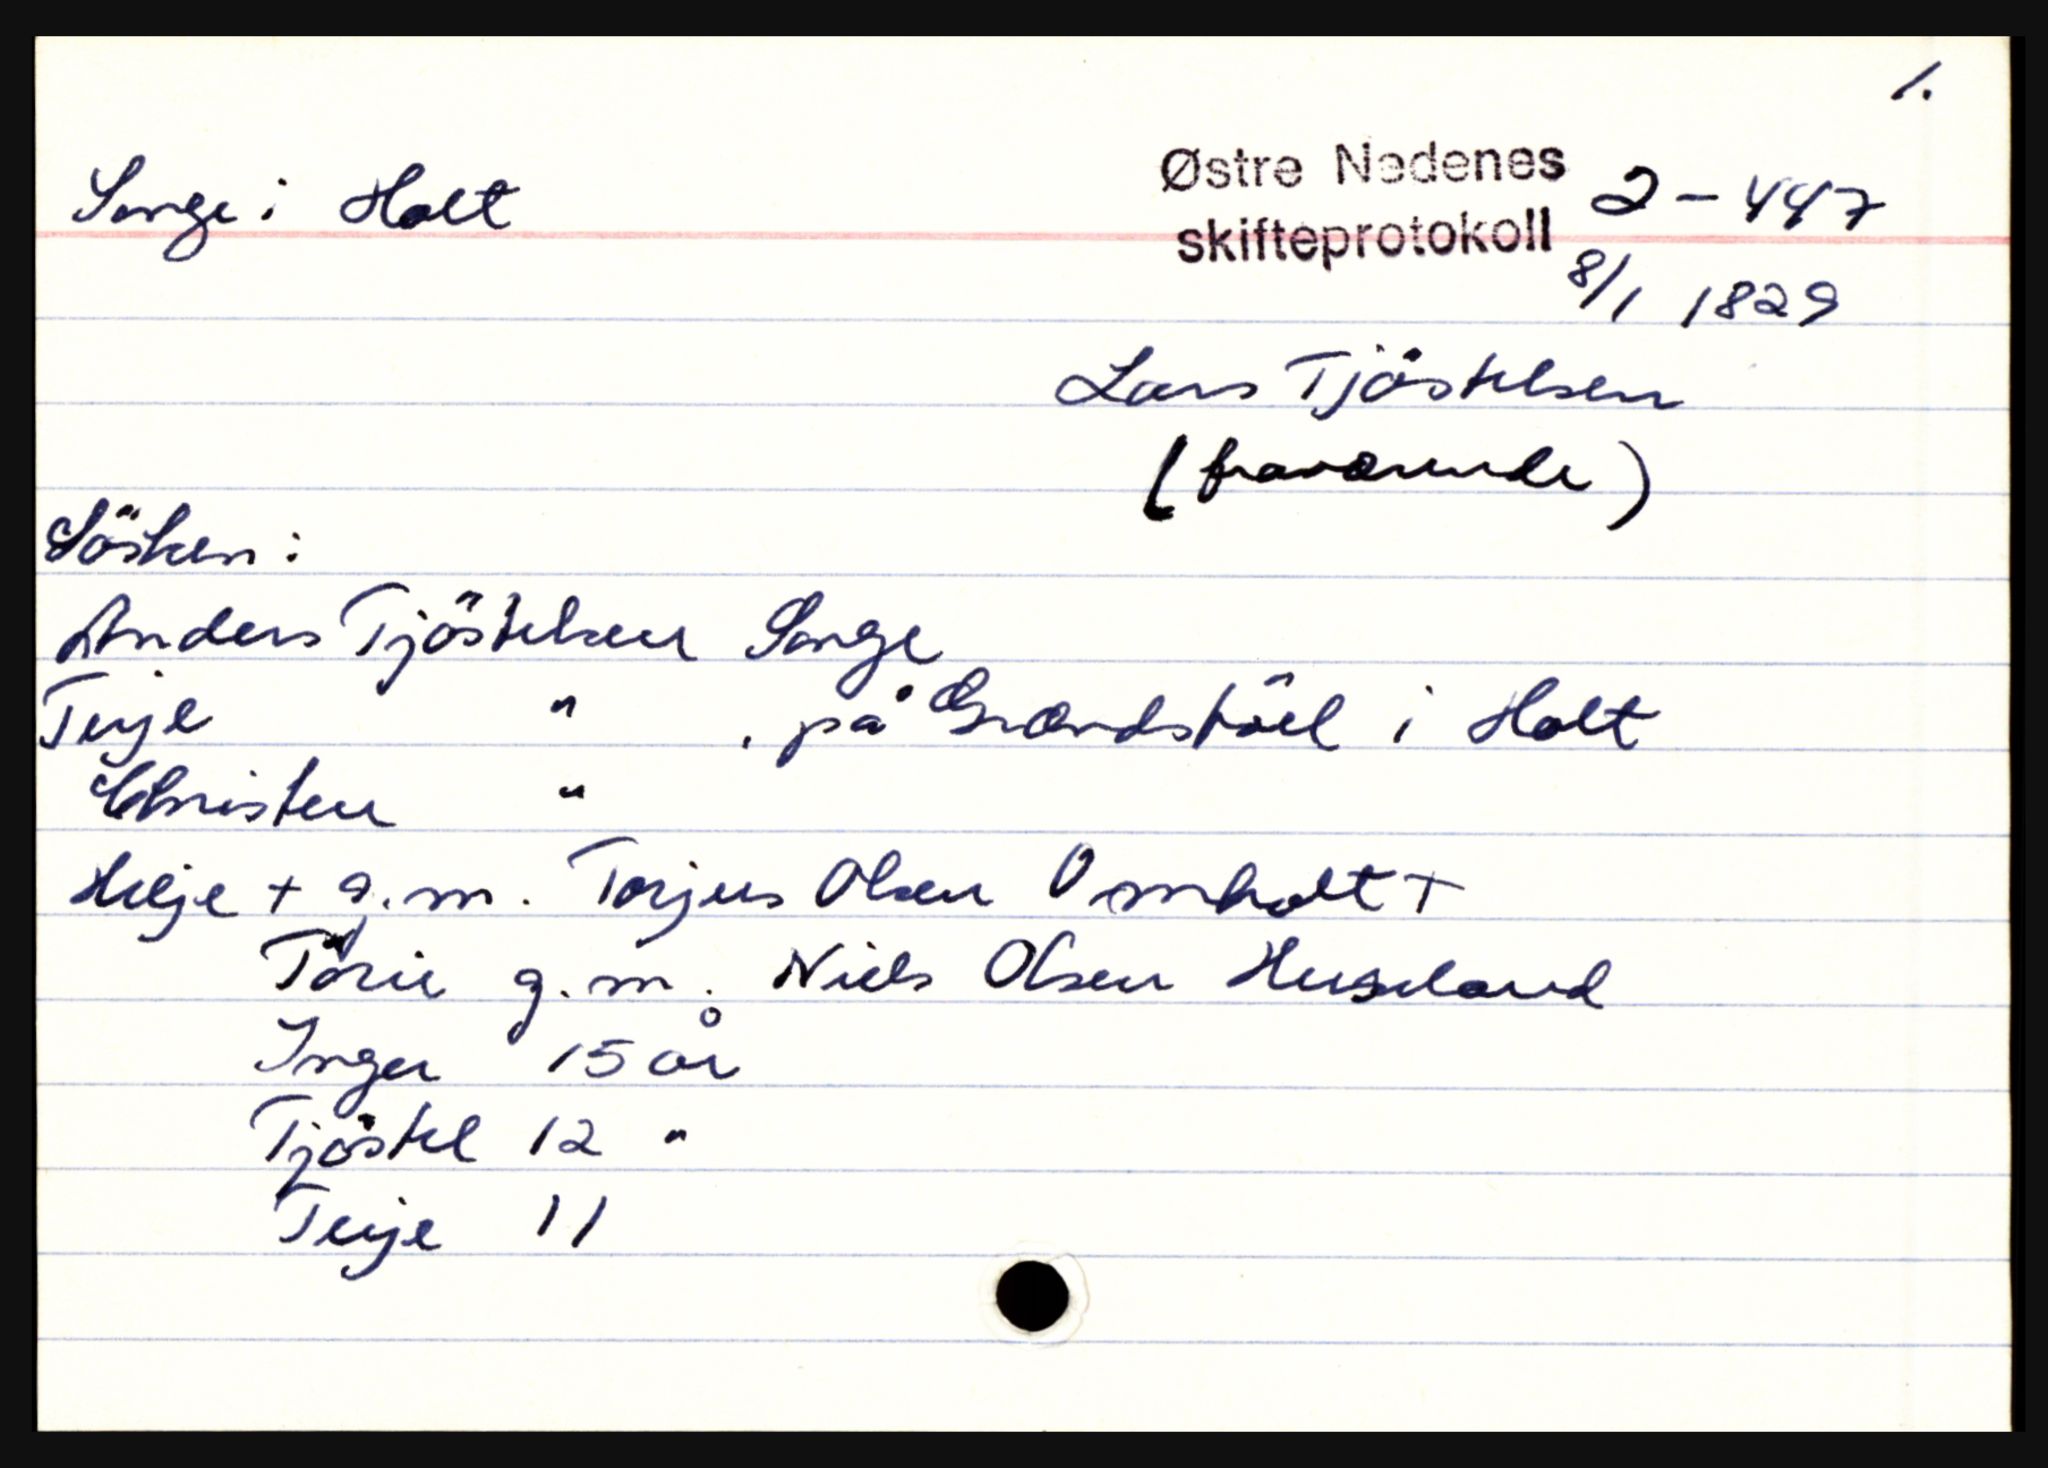 1.
Songe i Holt
Østre Nedenes
skifteprotokoll
2-447
8/1 1829
Lars Tjöstelsen
(fraværende)
Sösken:
Anders Tjöstelsen Songe
Terje " , på Grændstöel i Holt
Christen "
Helje + g.m. Torjus Olsen Omholt +
Törie g.m. Niels Olsen Huseland
Inger 15 år
Tjöstel 12 "
Terje 11